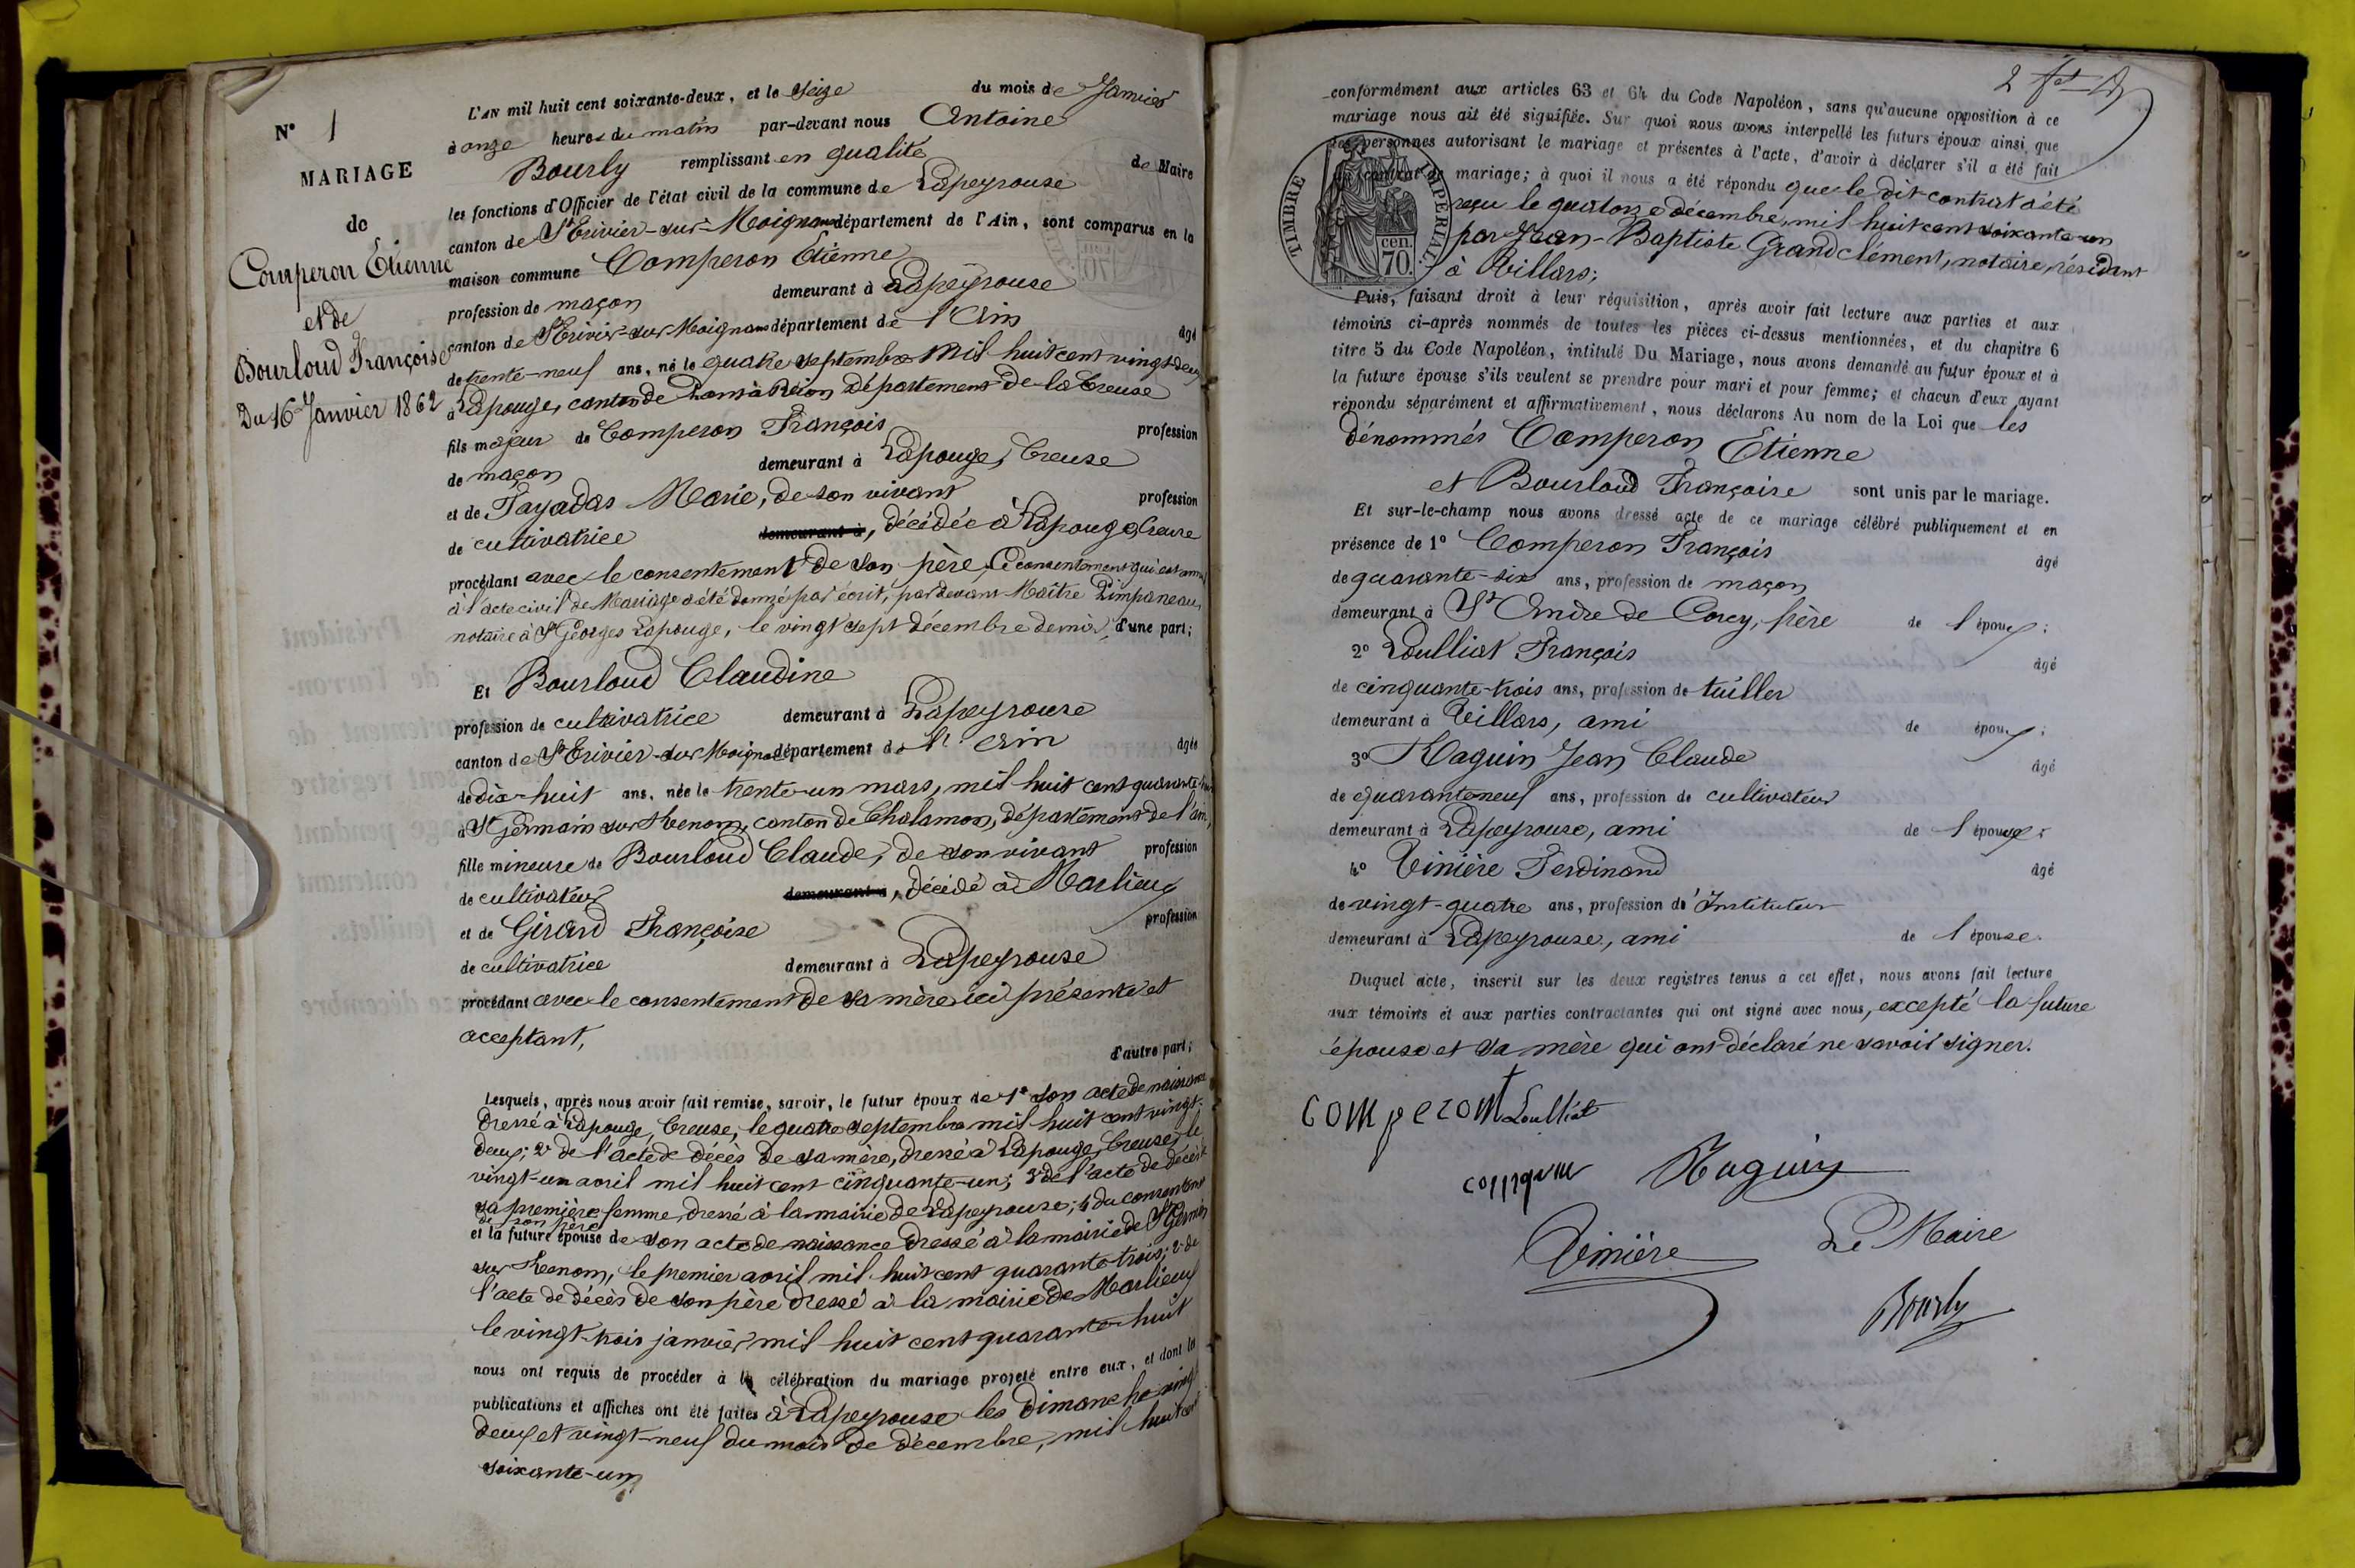 N° 1
MARIAGE
de
Comperon Etienne
et de
Bourloud Françoise
Du 16 Janvier 1862
L'AN mil huit cent soixante-deux, et le Seize du mois de Janvier
à onze heures du matin par-devant nous Antoine
Bourly remplissant en qualité de Maire
les fonctions d'Officier de l'état civil de la commune de Lapeyrouse
canton de St Trivier-sur-Moignans département de l'Ain, sont comparus en la
maison commune Comperon Etienne
profession de maçon demeurant à Lapeyrouse
canton de St Trivier-sur-Moignans département de l'Ain âgé
de trente-neuf ans, né le quatre septembre mil huit cent vingt-deux
à Lapouge, canton de département de la Creuse
fils majeur de Comperon François profession
de maçon demeurant à Lapouge, Creuse
et de Tayadas Marie, de son vivant profession
de cultivatrice demeurant à, décédée à Lapouge, Creuse
procédant avec le consentement de son père, Ce consentement qui est
à l'acte civil de Mariage a été donné par écrit, pardevant Maître Limpaneau,
notaire à St Georges Lapouge, le vingt sept décembre dernier, d'une part;
Et Bourloud Claudine
profession de cultivatrice demeurant à Lapeyrouse
canton de St Trivier-sur-Moignans département de l'Ain âgée
de dix-huit ans, née le trente-un mars, mil huit cent quarante-trois
à St Germain sur Renom, canton de Chalamon, département de l'ain,
fille mineure de Bourloud Claude, de son vivant profession
de cultivateur demeurant à, décédé à Marlieux
et de Girard Françoise profession
de cultivatrice demeurant à Lapeyrouse
procédant avec le consentement de sa mère ici présente et
acceptant,
d'autre part;
Lesquels, après nous avoir fait remise, savoir, le futur époux de 1° son acte de naissance
dressé à Lapouge, Creuse, le quatre septembre mil huit cent vingt-
deux; 2° de l'acte de décès de sa mère, dressé à Lapouge, Creuse, le
vingt-un avril mil huit cent cinquante-un; 3° de l'acte de décès
sa première femme, dressé à la mairie de Lapeyrouse; 4° du consentement
de son père
et la future épouse de son acte de naissance dressé à la mairie de St Germain
sur Renom, le premier avril mil huit cent quarante-trois; 2° de
l'acte de décès de son père dressé à la mairie de Marlieux
le vingt-trois janvier mil huit cent quarante-huit
nous ont requis de procéder à la célébration du mariage projeté entre eux, et dont les
publications et affiches ont été faites à Lapeyrouse les dimanche vingt
deux et vingt-neuf du mois de décembre, mil huit cent
soixante-un
conformément aux articles 63 et 64 du Code Napoléon, sans qu'aucune opposition à ce
mariage nous ait été signifiée. Sur quoi nous avons interpellé les futurs époux ainsi que
les personnes autorisant le mariage et présentes à l'acte, d'avoir à déclarer s'il a été fait
un contrat de mariage; à quoi il nous a été répondu que le dit contrat a été
reçu le quatorze décembre, mil huit cent soixante-un
par Jean-Baptiste Grandclément, notaire, résidant
à Villars;
TIMBRE IMPERIAL
cen.
70.
Puis, faisant droit à leur réquisition, après avoir fait lecture aux parties et aux
témoins ci-après nommés de toutes les pièces ci-dessus mentionnées, et du chapitre 6
titre 5 du Code Napoléon, intitulé Du Mariage, nous avons demandé au futur époux et à
la future épouse s'ils veulent se prendre pour mari et pour femme; et chacun d'eux ayant
répondu séparément et affirmativement, nous déclarons Au nom de la Loi que les
dénommés Comperon Etienne
et Bourloud Françoise sont unis par le mariage.
Et sur-le-champ nous avons dressé acte de ce mariage célébré publiquement et en
présence de 1° Comperon François âgé
de quarante-six ans, profession de maçon
demeurant à St Andre de Corcy, frère de l'époux;
2° Loulliat François âgé
de cinquante-trois ans, profession de tuillier
demeurant à Villars, ami de époux;
3° Raguin Jean Claude âgé
de quarante neuf ans, profession de cultivateur
demeurant à Lapeyrouse, ami de l'épouse;
4° Vinière Ferdinand âgé
de vingt-quatre ans, profession d'Instituteur
demeurant à Lapeyrouse, ami de l'épouse.
Duquel acte, inscrit sur les deux registres tenus à cet effet, nous avons fait lecture
aux témoins et aux parties contractantes qui ont signé avec nous, excepté la future
épouse et sa mère qui ont déclaré ne savoir signer.
comperont Loulliat
Raguin
Vinière Le Maire
Bourly